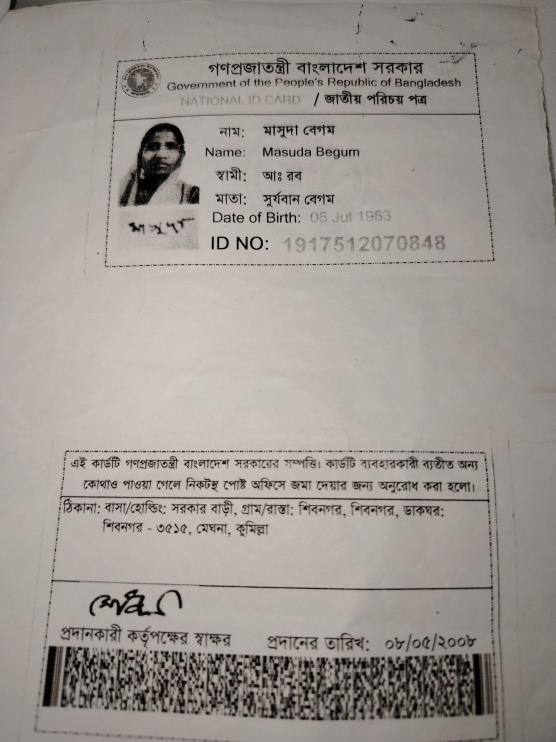 গণপ্রজাতন্ত্রী বাংলাদেশ সরকার
Government of the People's Republic of Bangladesh
NATIONAL ID CARD / জাতীয় পরিচয় পত্র
নাম: মাসুদা বেগম
Name: Masuda Begum
স্বামী: আঃ রব
মাতা: সুর্যবান বেগম
Date of Birth: 05 Jul 1963
মাসুদা
ID NO: 1917512070848
এই কার্ডটি গণপ্রজাতন্ত্রী বাংলাদেশ সরকারের সম্পত্তি। কার্ডটি ব্যবহারকারী ব্যতীত অন্য
কোথাও পাওয়া গেলে নিকটস্থ পোষ্ট অফিসে জমা দেয়ার জন্য অনুরোধ করা হলো।
ঠিকানা: বাসা/হোল্ডিং: সরকার বাড়ী, গ্রাম/রাস্তা: শিবনগর, শিবনগর, ডাকঘর:
শিবনগর - ৩৫১৫, মেঘনা, কুমিল্লা
প্রদানকারী কর্তৃপক্ষের স্বাক্ষর প্রদানের তারিখ: ০৮/০৫/২০০৮